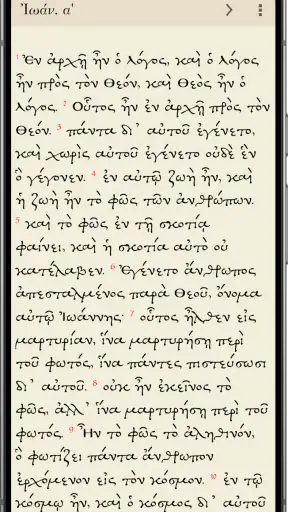 Ἰωάν. α'
1 Ἐν ἀρχῇ ἦν ὁ λόγος, καὶ ὁ λόγος
ἦν πρὸς τὸν Θεόν, καὶ Θεὸς ἦν ὁ
λόγος. 2 Οὗτος ἦν ἐν ἀρχῇ πρὸς τὸν
Θεόν. 3 πάντα δι᾽ αὐτοῦ ἐγένετο,
καὶ χωρὶς αὐτοῦ ἐγένετο οὐδὲ ἓν
ὃ γέγονεν. 4 ἐν αὐτῷ ζωὴ ἦν, καὶ
ἡ ζωὴ ἦν τὸ φῶς τῶν ἀνθρώπων.
5 καὶ τὸ φῶς ἐν τῇ σκοτίᾳ
φαίνει, καὶ ἡ σκοτία αὐτὸ οὐ
κατέλαβεν. 6 Ἐγένετο ἄνθρωπος
ἀπεσταλμένος παρὰ Θεοῦ, ὄνομα
αὐτῷ Ἰωάννης· 7 οὗτος ἦλθεν εἰς
μαρτυρίαν, ἵνα μαρτυρήσῃ περὶ
τοῦ φωτός, ἵνα πάντες πιστεύσωσι
δι᾽ αὐτοῦ. 8 οὐκ ἦν ἐκεῖνος τὸ
φῶς, ἀλλ᾽ ἵνα μαρτυρήσῃ περὶ τοῦ
φωτός. 9 Ἦν τὸ φῶς τὸ ἀληθινόν,
ὃ φωτίζει πάντα ἄνθρωπον
ἐρχόμενον εἰς τὸν κόσμον. 10 ἐν τῷ
κόσμῳ ἦν, καὶ ὁ κόσμος δι᾽ αὐτοῦ